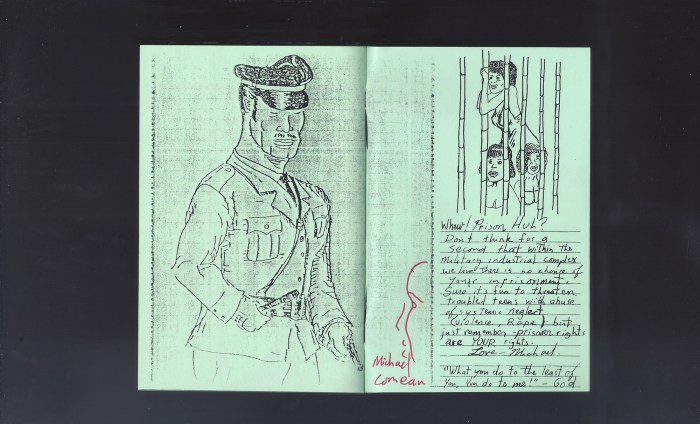 Michael
Comeau
Whew! Prison HUh?
Don't think for a
second that within the
military industrial complex
we live! there is no chance of
Your imprisonment.
Sure it's fun to threaten
troubled teens with abuse
of systemic neglect
(violence, Rape) but
just remember - prisoner rights
are YOUR rights.
Love - Michael.
"What you do to the least of
you, You do to me!" - God